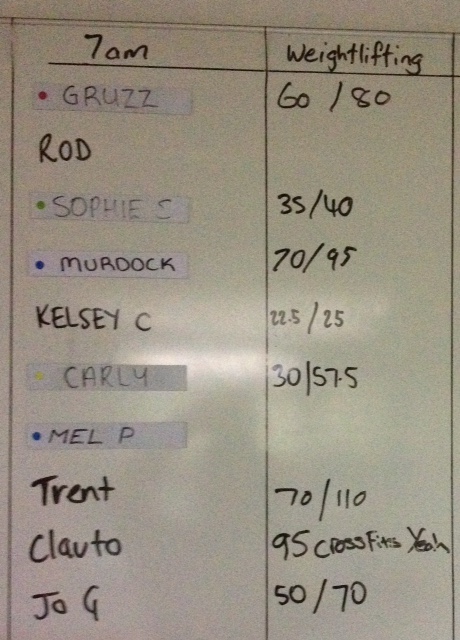 7am Weightlifting
GRUZZ 60 / 80
ROD
SOPHIE S 35/40
MURDOCK 70/95
KELSEY C 22.5 / 25
CARLY 30|57.5
MEL P
Trent 70/110
Clauto 95 CrossFits Yeah
Jo G 50/70